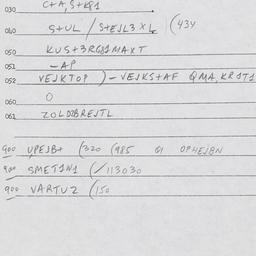 030 C+A, S+KP1
040 S+UL / S+EJL3 X L (434
050 KUS+3RGD1MAXT
051 -AP
052 VEJKTOP )-VEJKS+AF QMA, KRJT1
060 0
061 ZOLD2BREJTL
900 UPEJB+ (320 (985 GI OP4EJBN
900 SMET1N1 (/113030
900 VARTU2 (150